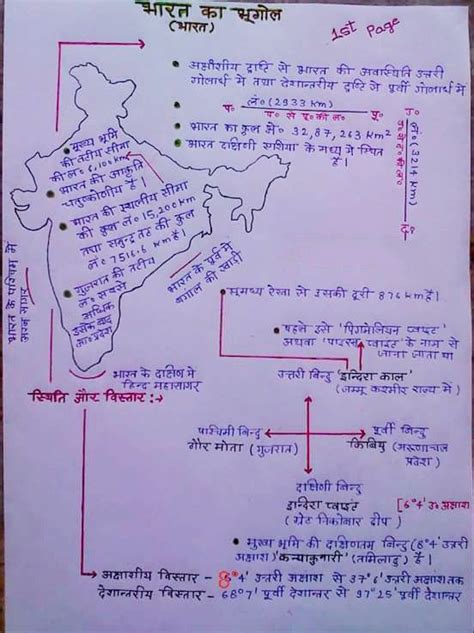 भारत का भूगोल
(भारत)
1st Page
अक्षांशीय दृष्टि से भारत की अवस्थिति उत्तरी
गोलार्ध में तथा देशान्तरीय दृष्टि से पूर्वी गोलार्ध में
लं० (2933 km)
प० से पू० की लं०
प०
पू०
उ०
लं० (3214 km)
द०
भारत का कुल क्षे० 32,87,263 km²
भारत दक्षिणी एशिया के मध्य में स्थित
है।
मुख्य भूमि
की तटीय सीमा
की लं० 6,100 km
भारत की आकृति
चतुष्कोणीय है।
भारत की स्थलीय सीमा
की कुल लं० 15,200 km
तथा समुन्द्र तट की कुल
लं० 7516.6 km है।
गुजरात की तटीय
लं० सबसे
अधिक
उसके बाद
आ०प्रदेश
भारत के पश्चिम में
अरब सागर
भारत के पूर्व में
बंगाल की खाड़ी
भारत के दक्षिण में
हिन्द महासागर
भूमध्य रेखा से उसकी दूरी 876 km है।
पहले इसे 'पिग्मेलियन प्वाइंट'
अथवा 'पारसन प्वाइंट' के नाम से
जाना जाता था
स्थिति और विस्तार :→
उत्तरी बिन्दु 'इन्दिरा काल'
(जम्मू कश्मीर राज्य में)
पश्चिमी बिन्दु
गौर मोता (गुजरात)
पूर्वी बिन्दु
किबिथु (अरुणाचल
प्रदेश)
दक्षिणी बिन्दु
इन्दिरा प्वाइंट [6°4' उ० अक्षांश
(ग्रेट निकोबार द्वीप)
मुख्य भूमि की दक्षिणतम बिन्दु (8°4' उत्तरी
अक्षांश) 'कन्याकुमारी' (तमिलनाडु) है।
अक्षांशीय विस्तार - 8°4' उत्तरी अक्षांश से 37°6' उत्तरी अक्षांश तक
देशान्तरीय विस्तार - 68°7' पूर्वी देशान्तर से 97°25' पूर्वी देशान्तर